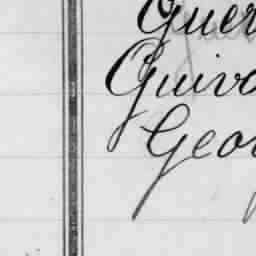 Guer
Guivo
Geor